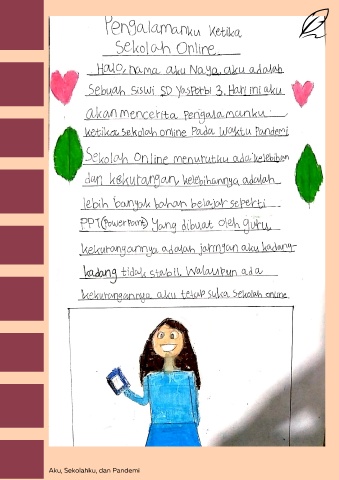 Pengalamanku ketika
Sekolah Online
Halo, nama aku Naya, aku adalah
Sebuah Siswi SD Yaspotbi 3. Hari ini aku
akan mencerita pengalamanku
ketika sekolah online Pada waktu Pandemi
Sekolah Online menurutku ada kelebihan
dan kekurangan, kelebihannya adalah
lebih banyak bahan belajar seperti
PPT (PowerPoint) Yang dibuat oleh guru,
kekurangannya adalah jaringan aku kadang-
kadang tidak stabil. Walaupun ada
kekurangannya aku tetap suka Sekolah online
Aku, Sekolahku, dan Pandemi